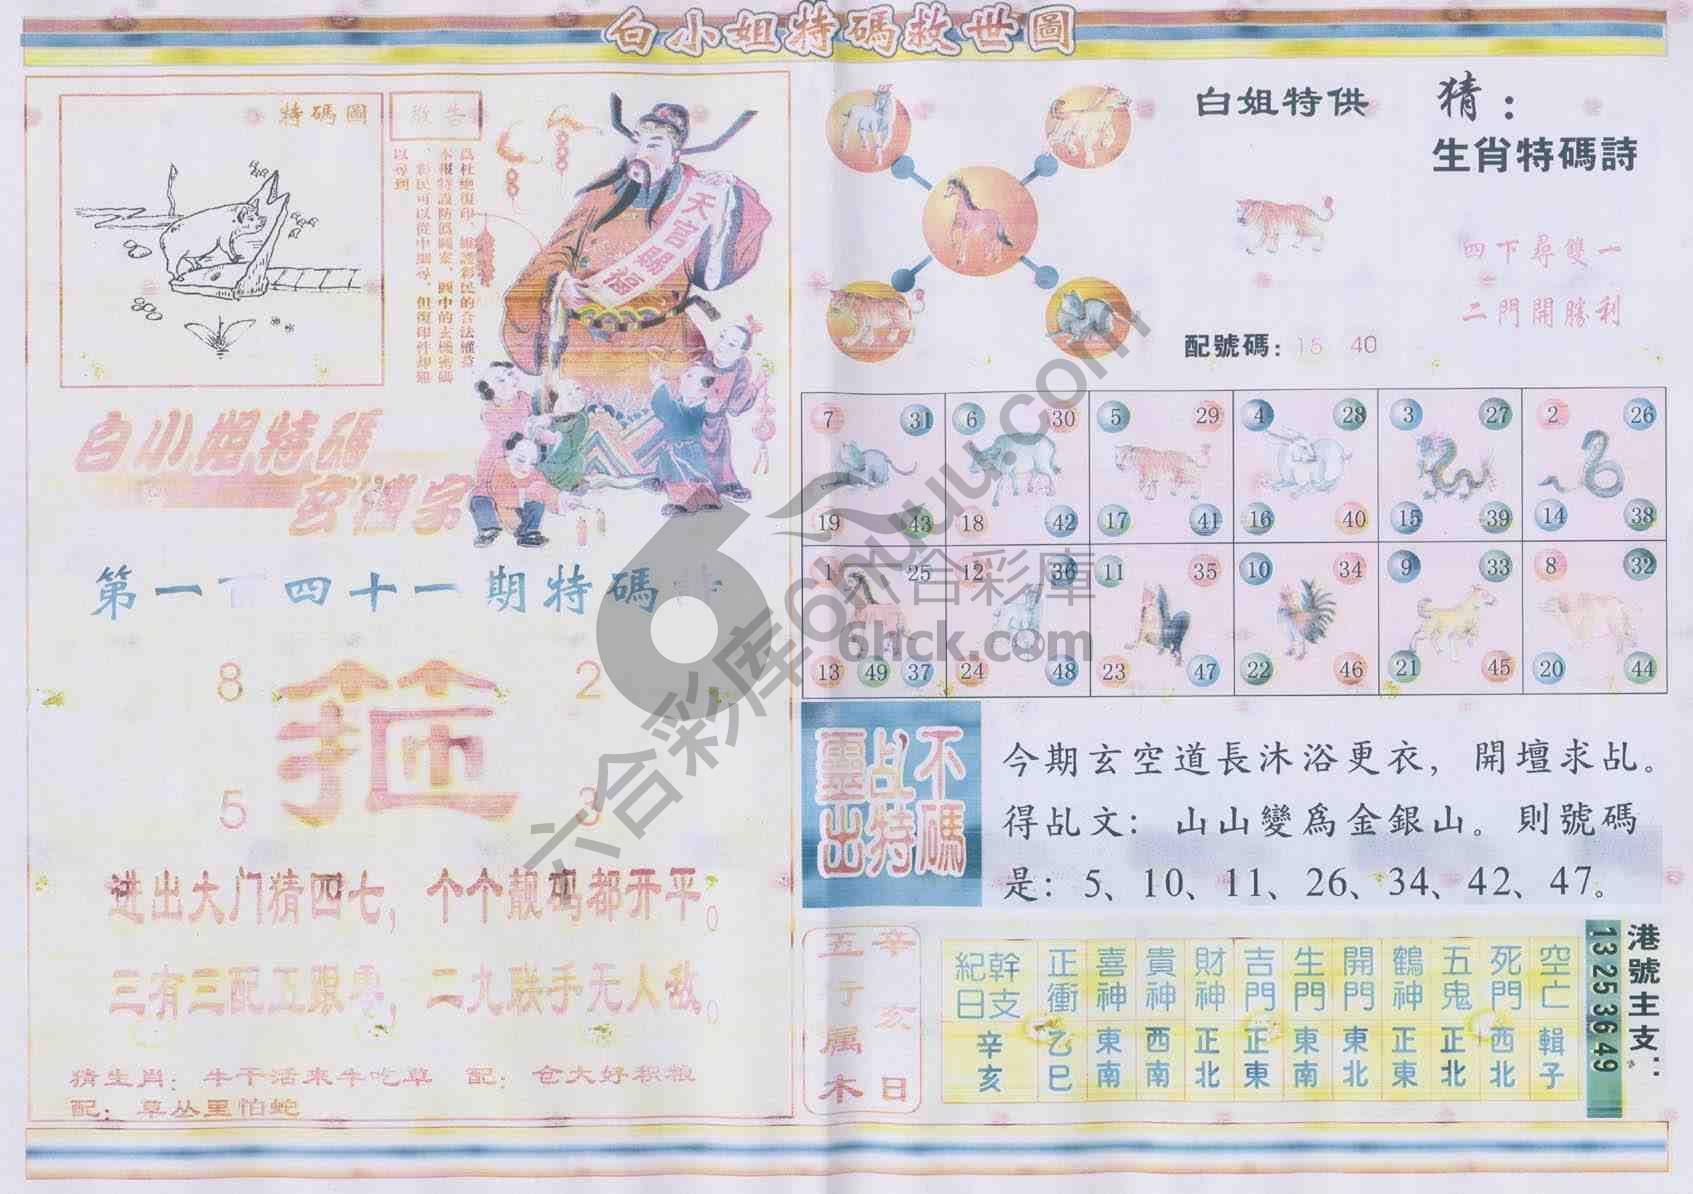 白小姐特碼救世圖
特碼圖
敬告
爲杜絶復印、維護彩民的合法權益
本報特設防僞圖案、圖中的玄機密碼
、彩民可以從中細尋、但復印件却難
以尋到
天官賜福
白小姐特碼
玄機字
第一百四十一期特碼
8
2
5
3
进出大门猜四七，个个靓码都开平。
三有三配五跟零，二九联手无人敌。
猜生肖：牛干活来牛吃草 配：仓大好积粮
配：草丛里怕蛇
白姐特供
猜：
生肖特碼詩
四下尋雙一
二門開勝利
配號碼：15 40
7 31 6 30 5 29 4 28 3 27 2 26
19 43 18 42 17 41 16 40 15 39 14 38
1 25 12 36 11 35 10 34 9 33 8 32
13 49 37 24 48 23 47 22 46 21 45 20 44
六合彩庫
6hck.com
六合彩库ohuuu.com
不碼
乩特
靈出
今期玄空道長沐浴更衣，開壇求乩。
得乩文：山山變爲金銀山。則號碼
是：5、10、11、26、34、42、47。
辛亥日
五行属木
幹支紀日 正衝 喜神 貴神 財神 吉門 生門 開門 鶴神 五鬼 死門 空亡
辛亥 乙巳 東南 西南 正北 正東 東南 東北 正東 正北 西北 輯子
港號主支：
13 25 36 49